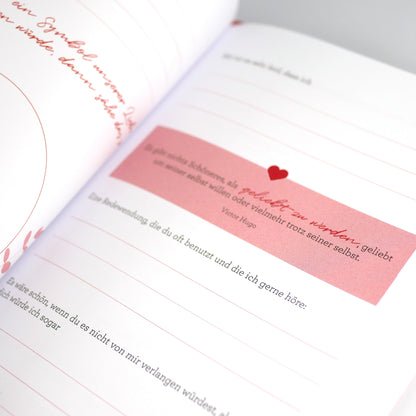 ein Symbol unserer
en würde, dann sähe das
sehr leid, dass ich
Es gibt nichts Schöneres, als geliebt zu werden, geliebt
um seiner selbst willen oder vielmehr trotz seiner selbst.
Victor Hugo
Eine Redewendung, die du oft benutzt und die ich gerne höre:
Es wäre schön, wenn du es nicht von mir verlangen würdest, a
dich würde ich sogar